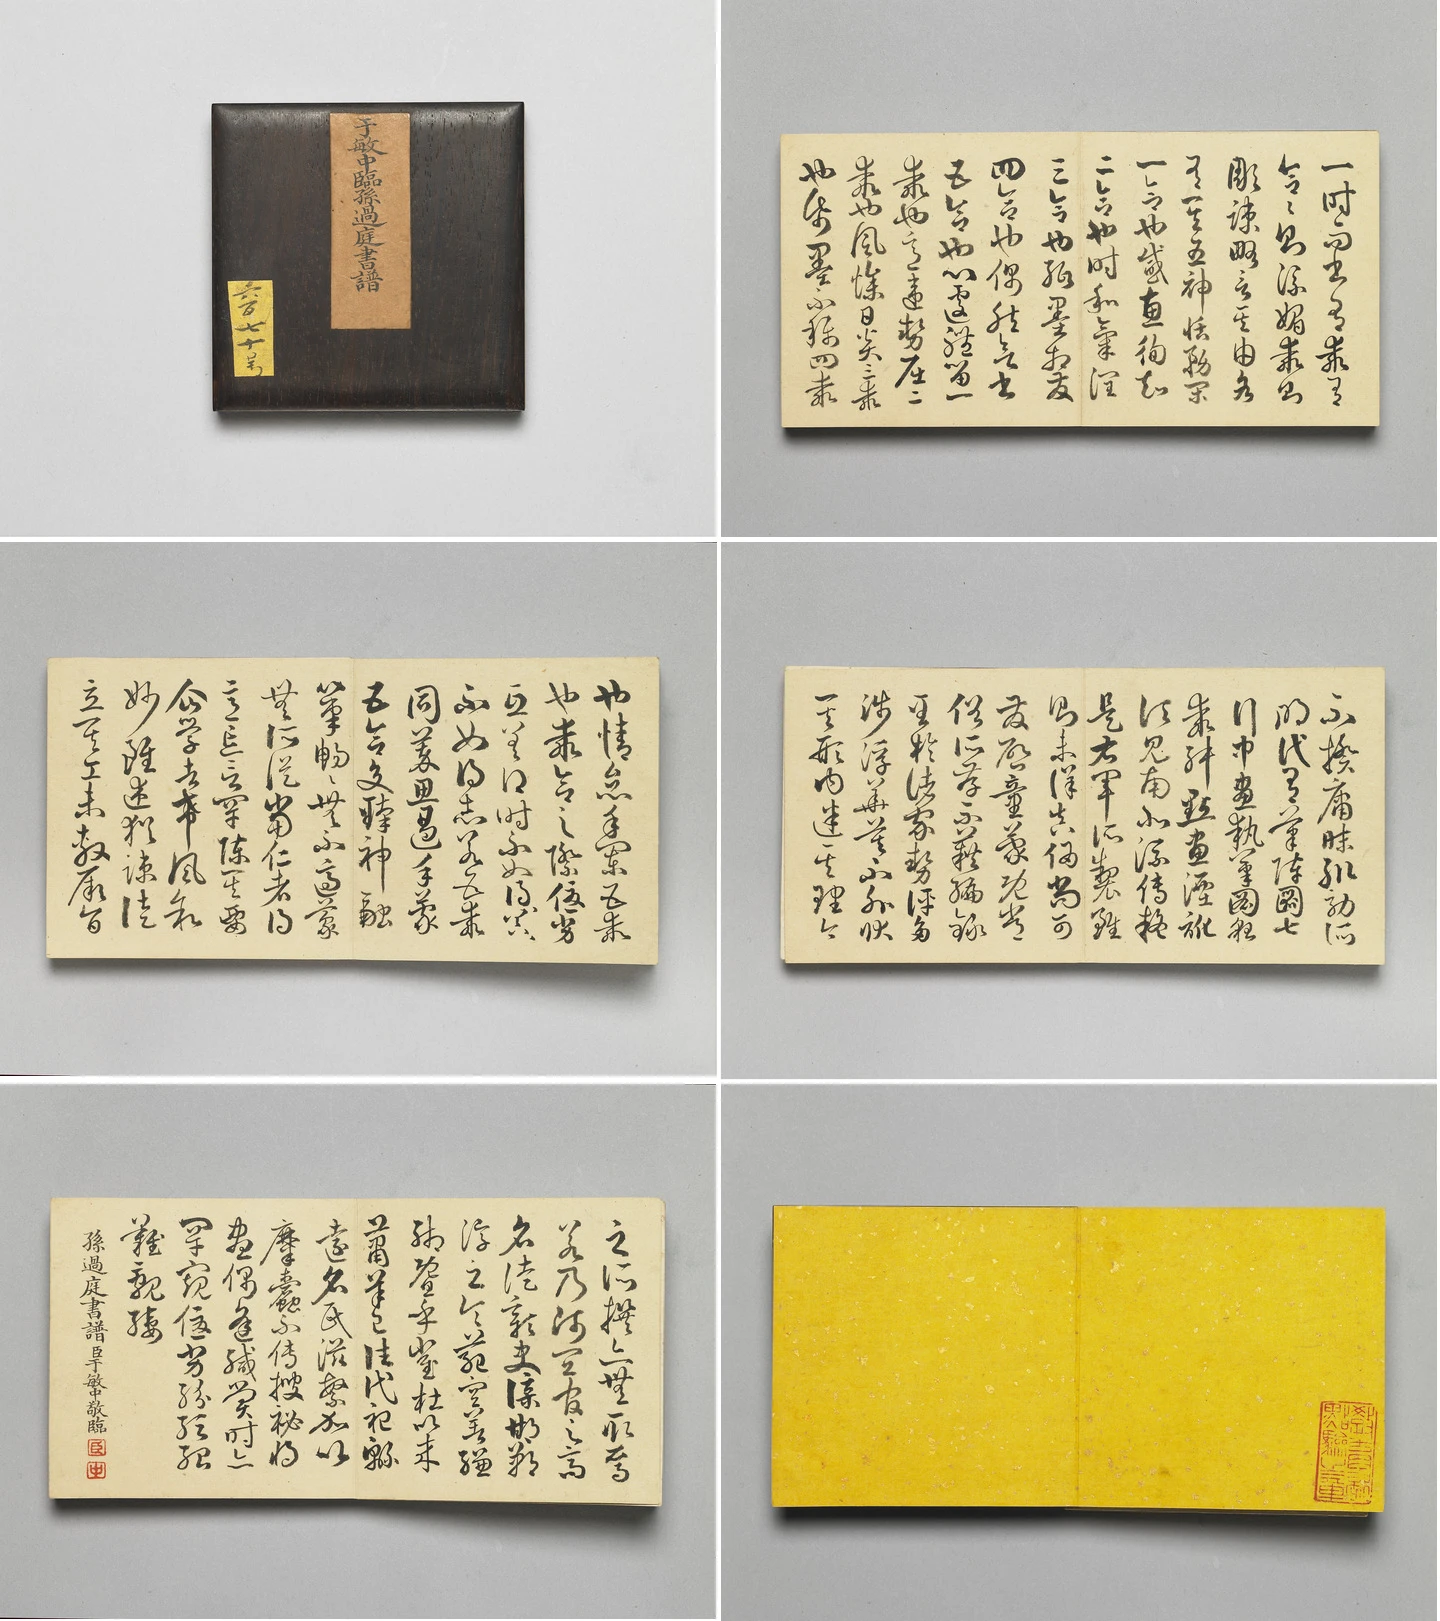 于敏中臨孫過庭書譜
六百七十号
一時而書有乖有
合〻則流媚乖則
彫疎略言其由各
有其五神怡務閑
一合也感惠徇知
二合也時和氣潤
三合也紙墨相發
四合也偶然欲書
五合也心遽體留一
乖也意違勢屈二
乖也風燥日炎三乖
也紙墨不稱四乖
也情怠手闌五乖
也乖合之際優劣
互差得時不如得器〻
不如得志若五乖
同萃思遏手蒙
五合交臻神融
筆暢〻無不適蒙
無所從當仁者得
意忘言罕陳其要
企學者希風敘
妙雖述猶疎徒
立其工未敷厥旨
不揆庸昧輒効所
明代有筆陣圖七
行中畫執筆圖貌
乖舛點畫湮訛
頃見南北流傳疑
是右軍所製雖
則未詳真偽尚可
發啟童蒙既常
俗所存不藉編錄
至於諸家勢評多
涉浮華莫不外狀
其形內迷其理今
之所撰亦無取焉
若乃師宜官之高
名徒彰史牒邯鄲
淳之令範空著縑
緗暨乎崔杜以來
蕭羊已往代祀綿
遠名氏滋繁加以
糜蠹不傳搜祕將
盡偶逢緘賞時亦
罕窺優劣紛紜殆
難覼縷
孫過庭書譜臣于敏中敬臨
臣
中